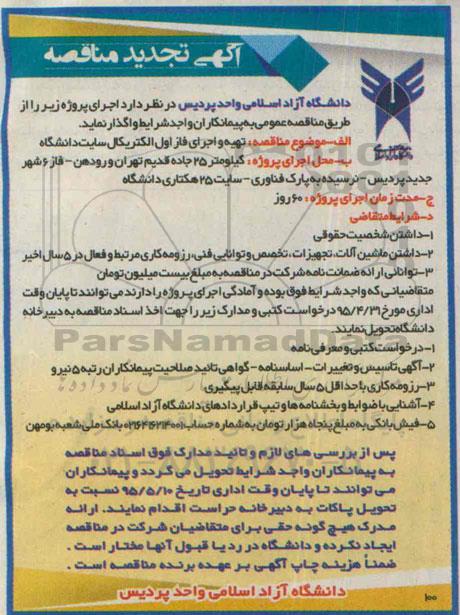 آگهی تجدید مناقصه
دانشگاه آزاد اسلامی واحد پردیس در نظر دارد اجرای پروژه زیر را از
طریق مناقصه عمومی به پیمانکاران واجد شرایط واگذار نماید.
الف-موضوع مناقصه: تهیه و اجرای فاز اول الکتریکال سایت دانشگاه
ب-محل اجرای پروژه: کیلومتر ۲۵ جاده قدیم تهران و رودهن - فاز ۶ شهر
جدید پردیس - نرسیده به پارک فناوری - سایت ۲۵ هکتاری دانشگاه
ج-مدت زمان اجرای پروژه: ۶۰ روز
د-شرایط متقاضی
۱-داشتن شخصیت حقوقی
۲-داشتن ماشین آلات، تجهیزات، تخصص و توانایی فنی، رزومه کاری مرتبط و فعال در ۵ سال اخیر
۳-توانائی ارائه ضمانت نامه شرکت در مناقصه به مبلغ بیست میلیون تومان
متقاضیانی که واجد شرایط فوق بوده و آمادگی اجرای پروژه را دارند می توانند تا پایان وقت
اداری مورخ ۹۵/۴/۳۱ درخواست کتبی و مدارک زیر را جهت اخذ اسناد مناقصه به دبیرخانه
دانشگاه تحویل نمایند.
۱-درخواست کتبی و معرفی نامه
۲-آگهی تاسیس و تغییرات - اساسنامه - گواهی تائید صلاحیت پیمانکاران رتبه ۵ نیرو
۳-رزومه کاری با حداقل ۵ سال سابقه قابل پیگیری
۴-آشنایی با ضوابط و بخشنامه ها و تیپ قراردادهای دانشگاه آزاد اسلامی
۵-فیش بانکی به مبلغ پنجاه هزار تومان به شماره حساب بانک ملی شعبه بومهن
پس از بررسی های لازم و تائید مدارک فوق اسناد مناقصه
به پیمانکاران واجد شرایط تحویل می گردد و پیمانکاران
می توانند تا پایان وقت اداری تاریخ ۹۵/۵/۱۰ نسبت به
تحویل پاکات به دبیرخانه حراست اقدام نمایند. ارائه
مدرک هیچ گونه حقی برای متقاضیان شرکت در مناقصه
ایجاد نکرده و دانشگاه در رد یا قبول آنها مختار است.
ضمناً هزینه چاپ آگهی بر عهده برنده مناقصه است.
دانشگاه آزاد اسلامی واحد پردیس
۱۰۰
ParsNamadData